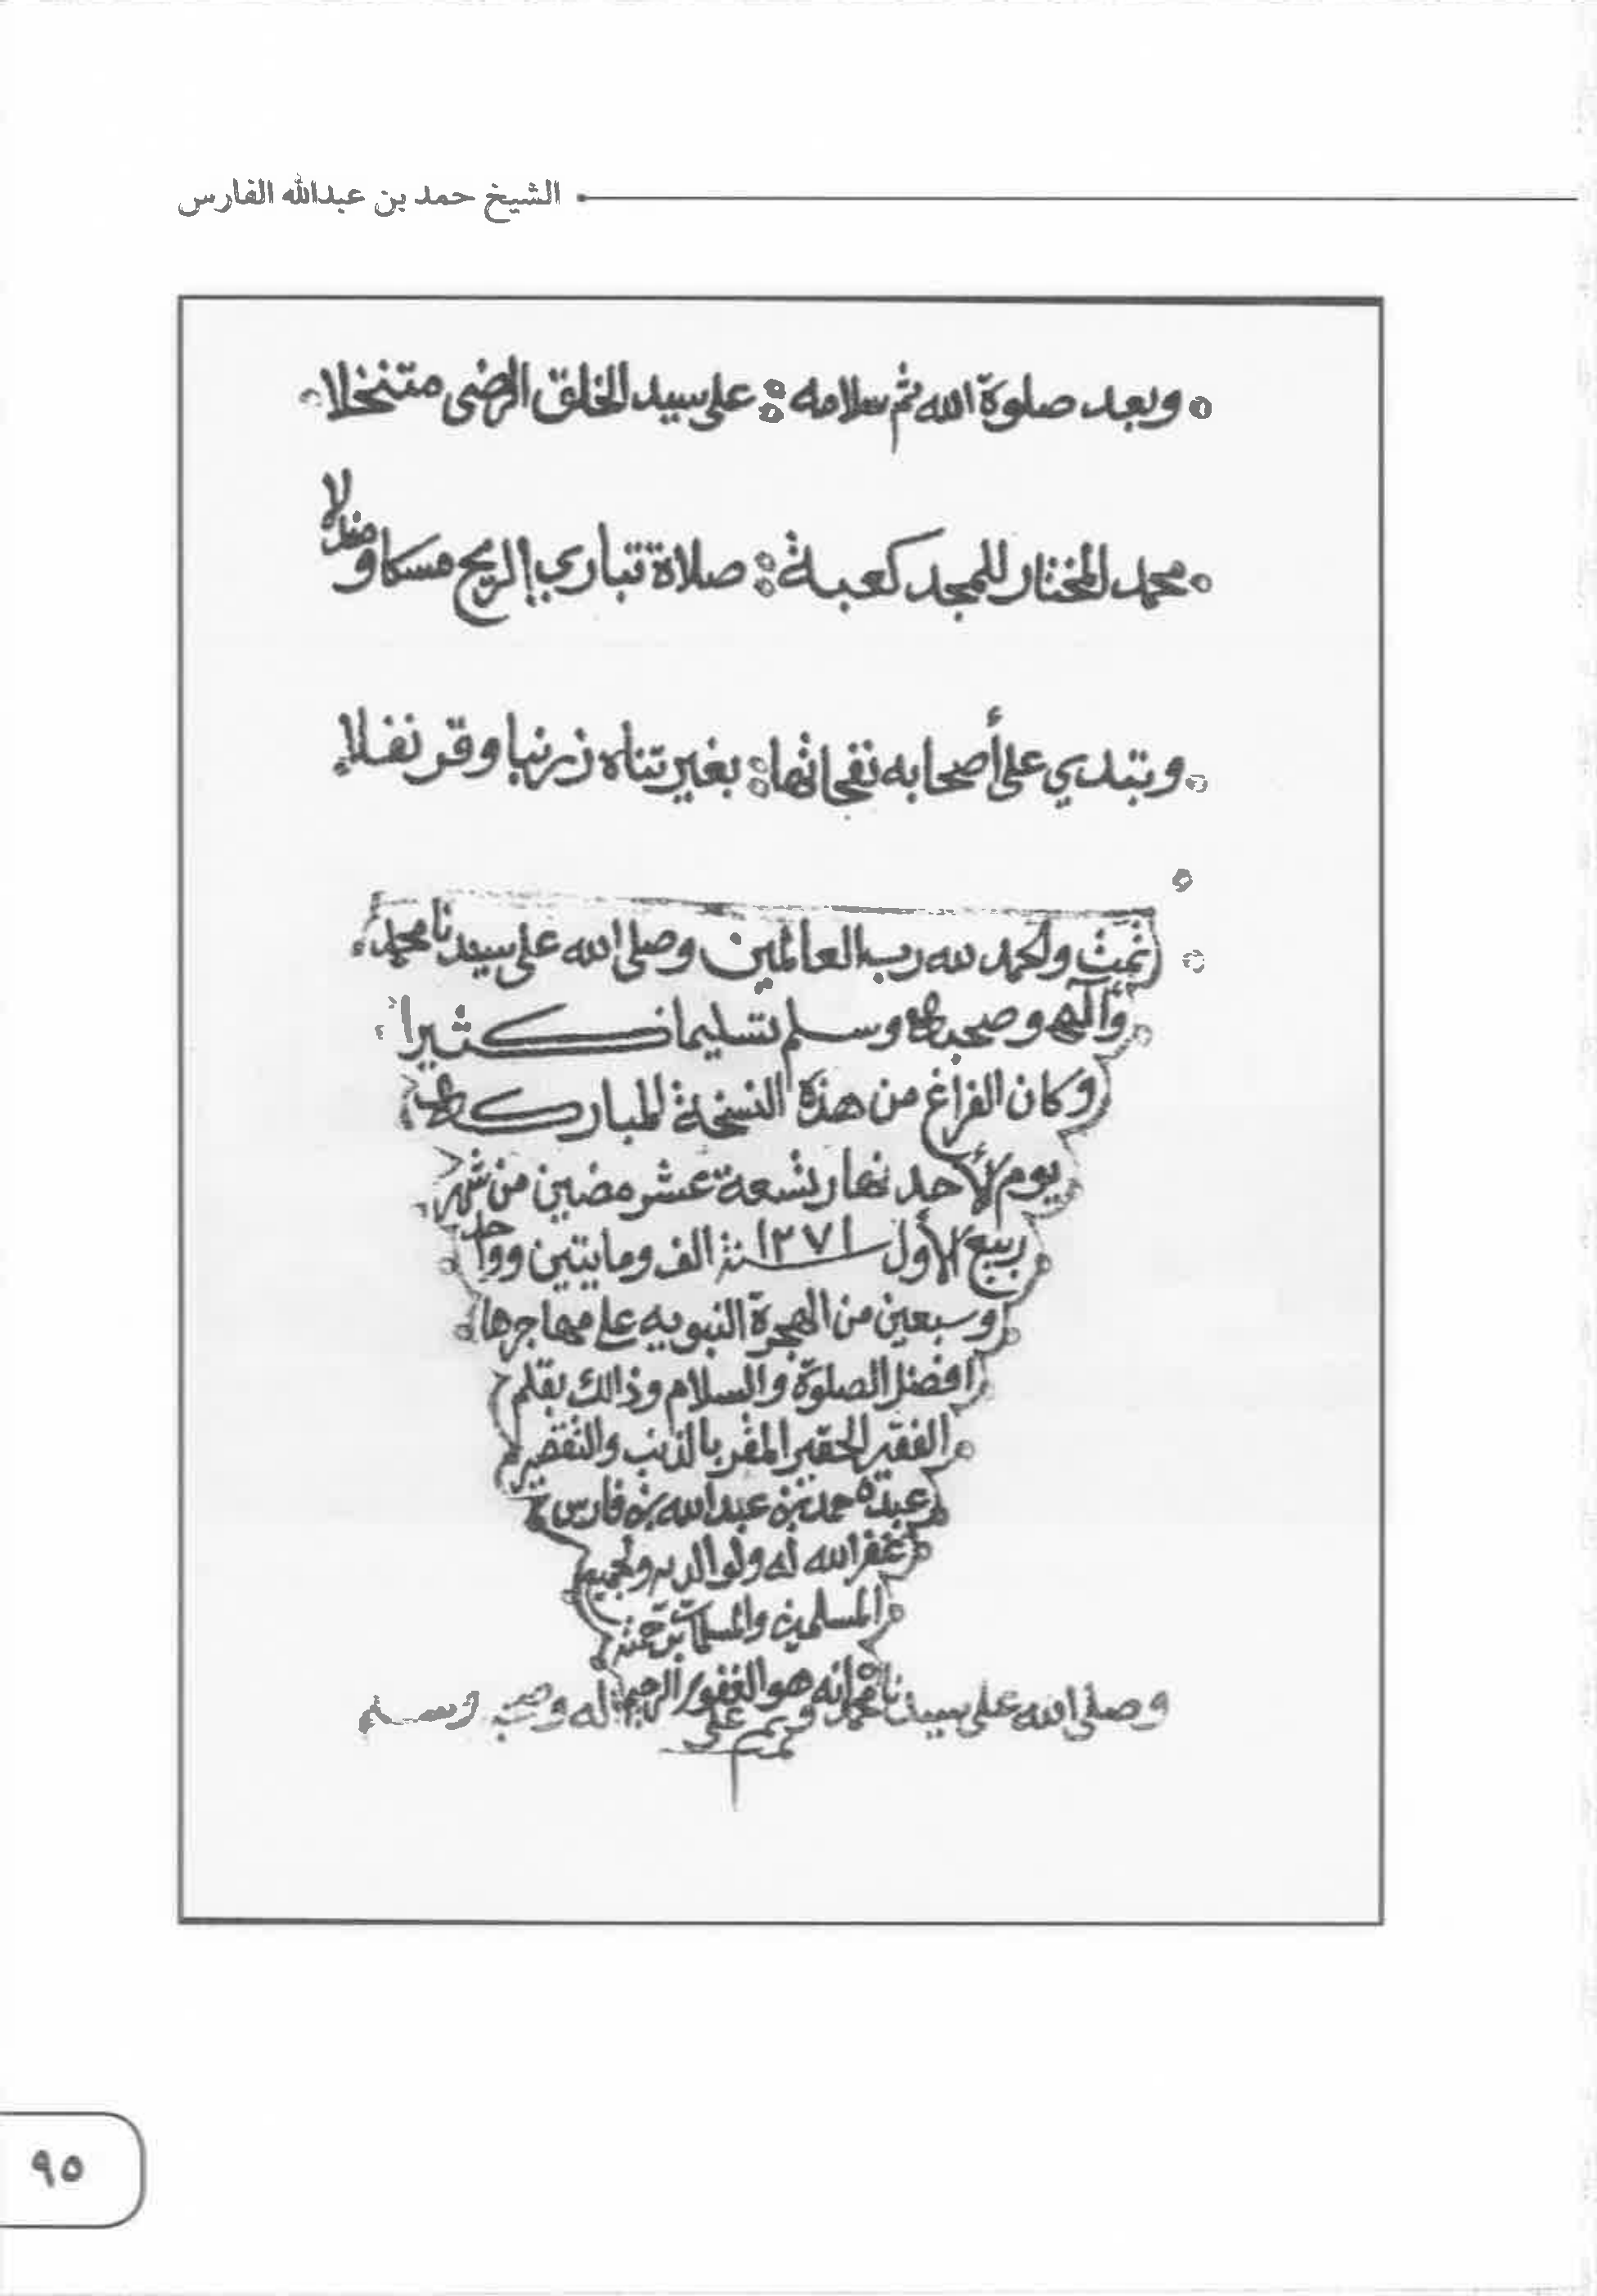 الشيخ حمد بن عبدالله الفارس
وبعد صلوة الله ثم سلامه على سيد الخلق الرضى متنخلا
محمد المختار للمجد كعبة صلاة تباري الريح مسكا ومندلا
وتبدي على أصحابه نفحاتها بغير تناه زرنبا وقرنفلا
تمت والحمد لله رب العالمين وصلى الله على سيدنا محمد
وآله وصحبه وسلم تسليما كثيرا
وكان الفراغ من هذه النسخة المباركه
يوم الأحد نهار تسعة عشر مضين من شهر
ربيع الأول ١٢٧١ سنة الف ومايتين وواحد
وسبعين من الهجرة النبويه على مهاجرها
افضل الصلوة والسلام وذالك بقلم
الفقير الحقير المقر بالذنب والتقصير
عبده حمد بن عبدالله بن فارس
غفر الله له ولوالديه ولجميع
المسلمين والمسلمات برحمته
انه هو الغفور الرحيم
وصلى الله على سيدنا محمد وعلى اله وصحبه وسلم
٩٥